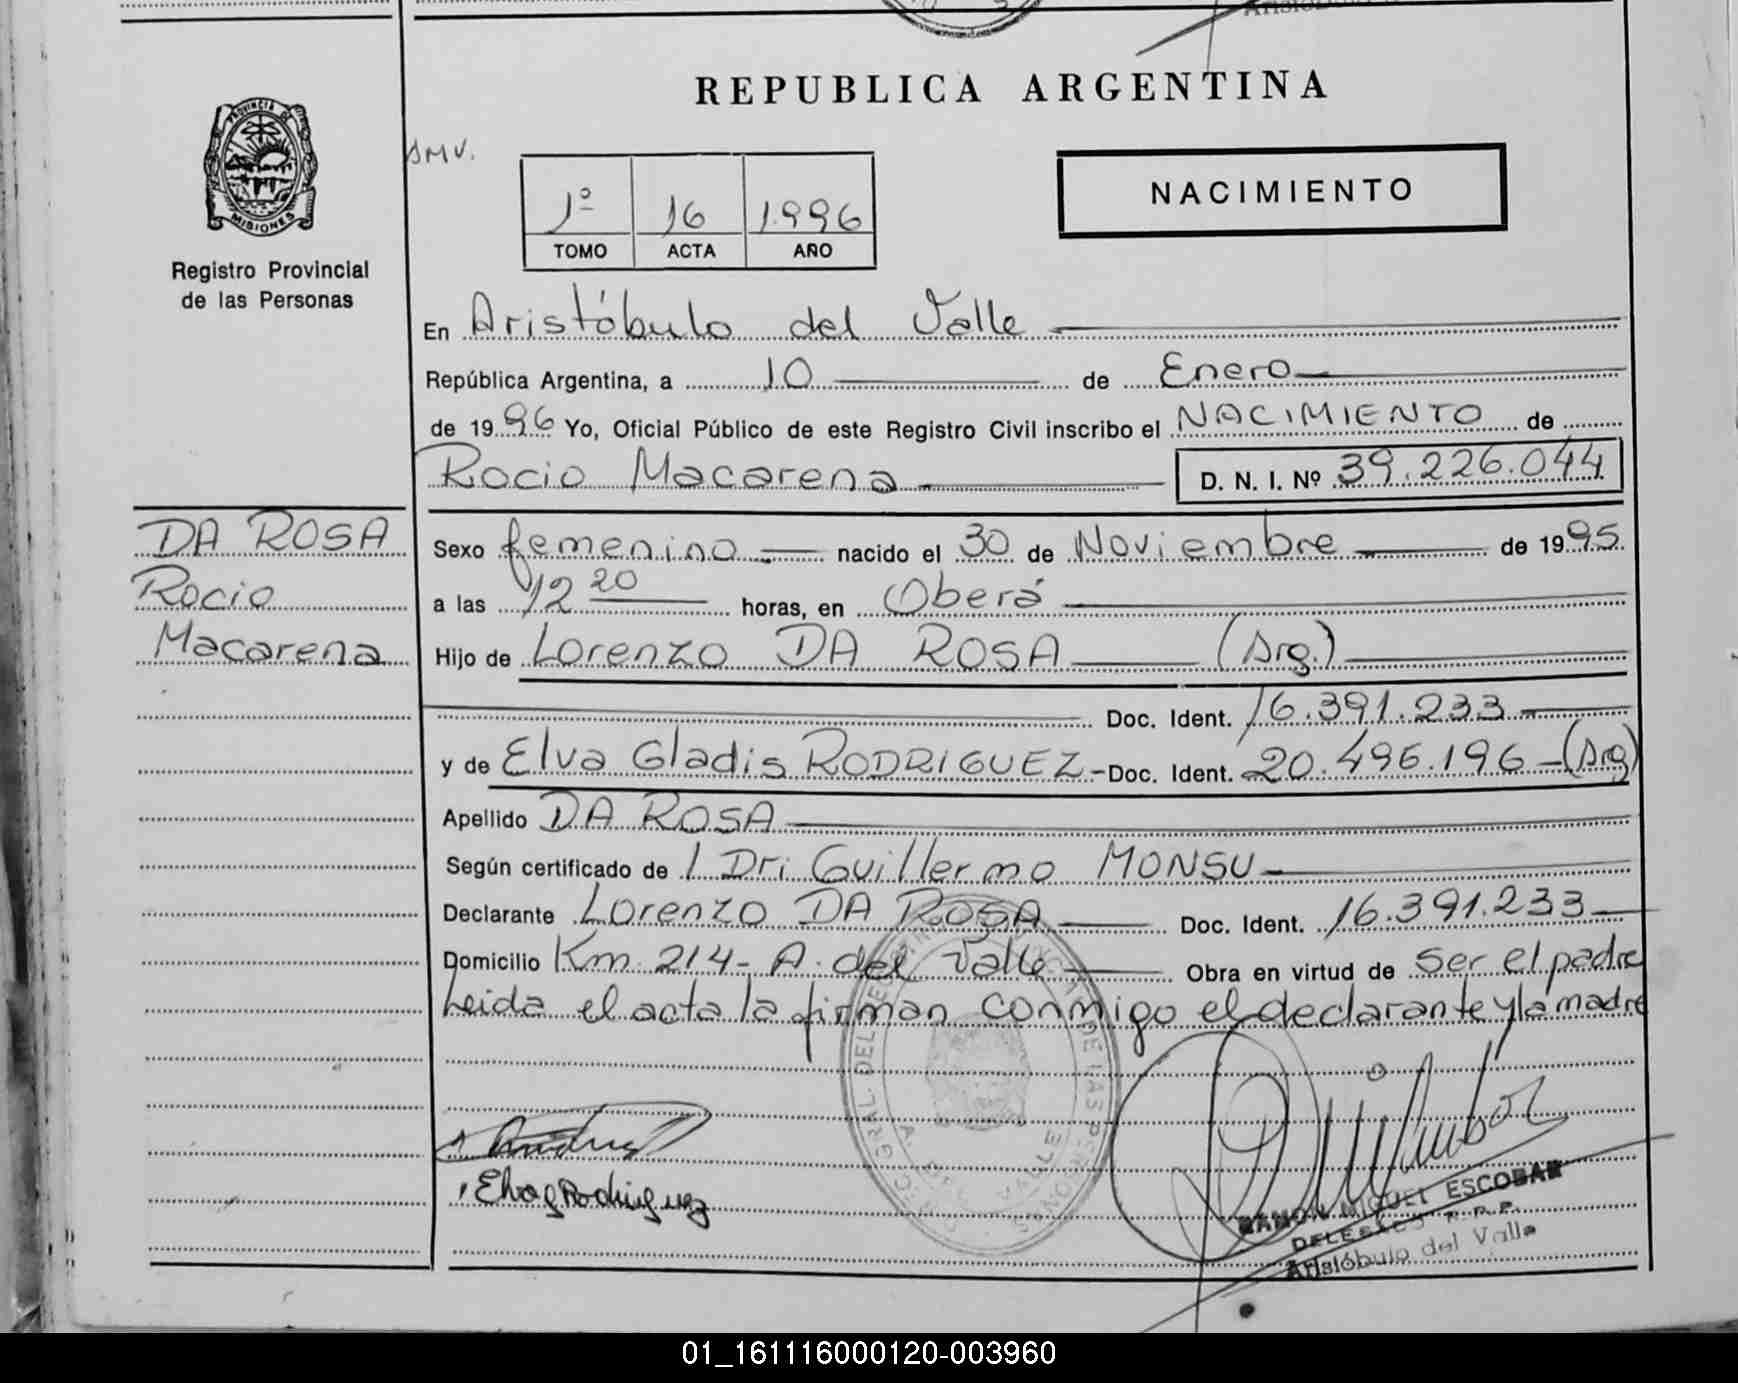 REPUBLICA ARGENTINA
PROVINCIA DE MISIONES
Registro Provincial
de las Personas
1º 16 1.996
TOMO ACTA AÑO
NACIMIENTO
En Aristóbulo del Valle
República Argentina, a 10 de Enero
de 1996 Yo, Oficial Público de este Registro Civil inscribo el NACIMIENTO de
Rocio Macarena D. N. I. Nº 39.226.044
DA ROSA
Rocio
Macarena
Sexo femenino nacido el 30 de Noviembre de 1995
a las 12 20 horas, en Oberá
Hijo de Lorenzo DA ROSA (Arg.)
Doc. Ident. 16.391.233
y de Elva Gladis RODRIGUEZ - Doc. Ident. 20.496.196 - (Arg)
Apellido DA ROSA
Según certificado de / Dr: Guillermo MONSU
Declarante Lorenzo DA ROSA Doc. Ident. 16.391.233
Domicilio Km 214 - A. del Valle Obra en virtud de ser el padre
Leida el acta la firman conmigo el declarante y la madre
Elva G Rodriguez
RAMON MIGUEL ESCOBAR
DELEGADO R.P.P.
Aristóbulo del Valle
01_161116000120-003960